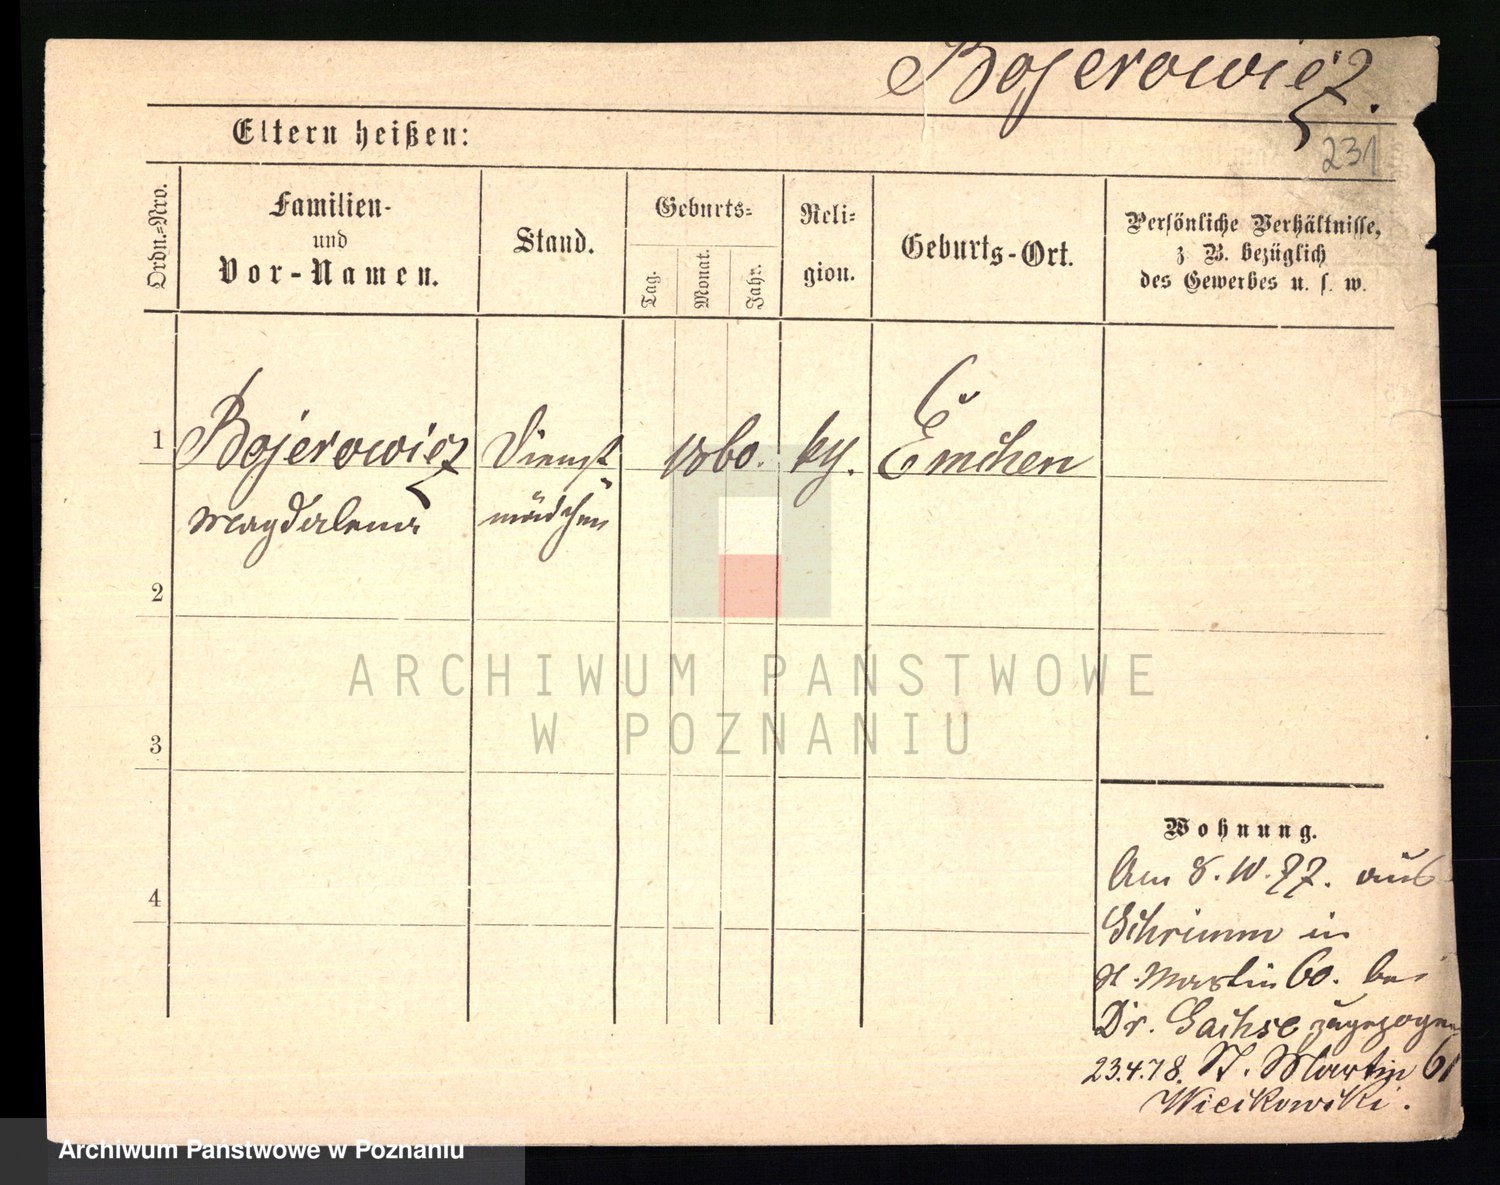 Bojerowicz.
Eltern heißen:
231
Ordn.-Nro.
Familien-
und
Vor-Namen.
Stand.
Geburts-
Tag.
Monat.
Jahr.
Reli-
gion.
Geburts-Ort.
Persönliche Verhältnisse,
z. B. bezüglich
des Gewerbes u. s. w.
1
Bojerowicz
Magdalena
Dienst
mädchen
1860.
Emchen
2
3
4
ARCHIWUM PAŃSTWOWE
W POZNANIU
Wohnung.
Am 8. 10. 77. aus
Schrimm in
St. Martin 60. bei
Dr. Sachse zugezogen
23.4.78. St. Martin 61
Wiecikowski.
Archiwum Państwowe w Poznaniu